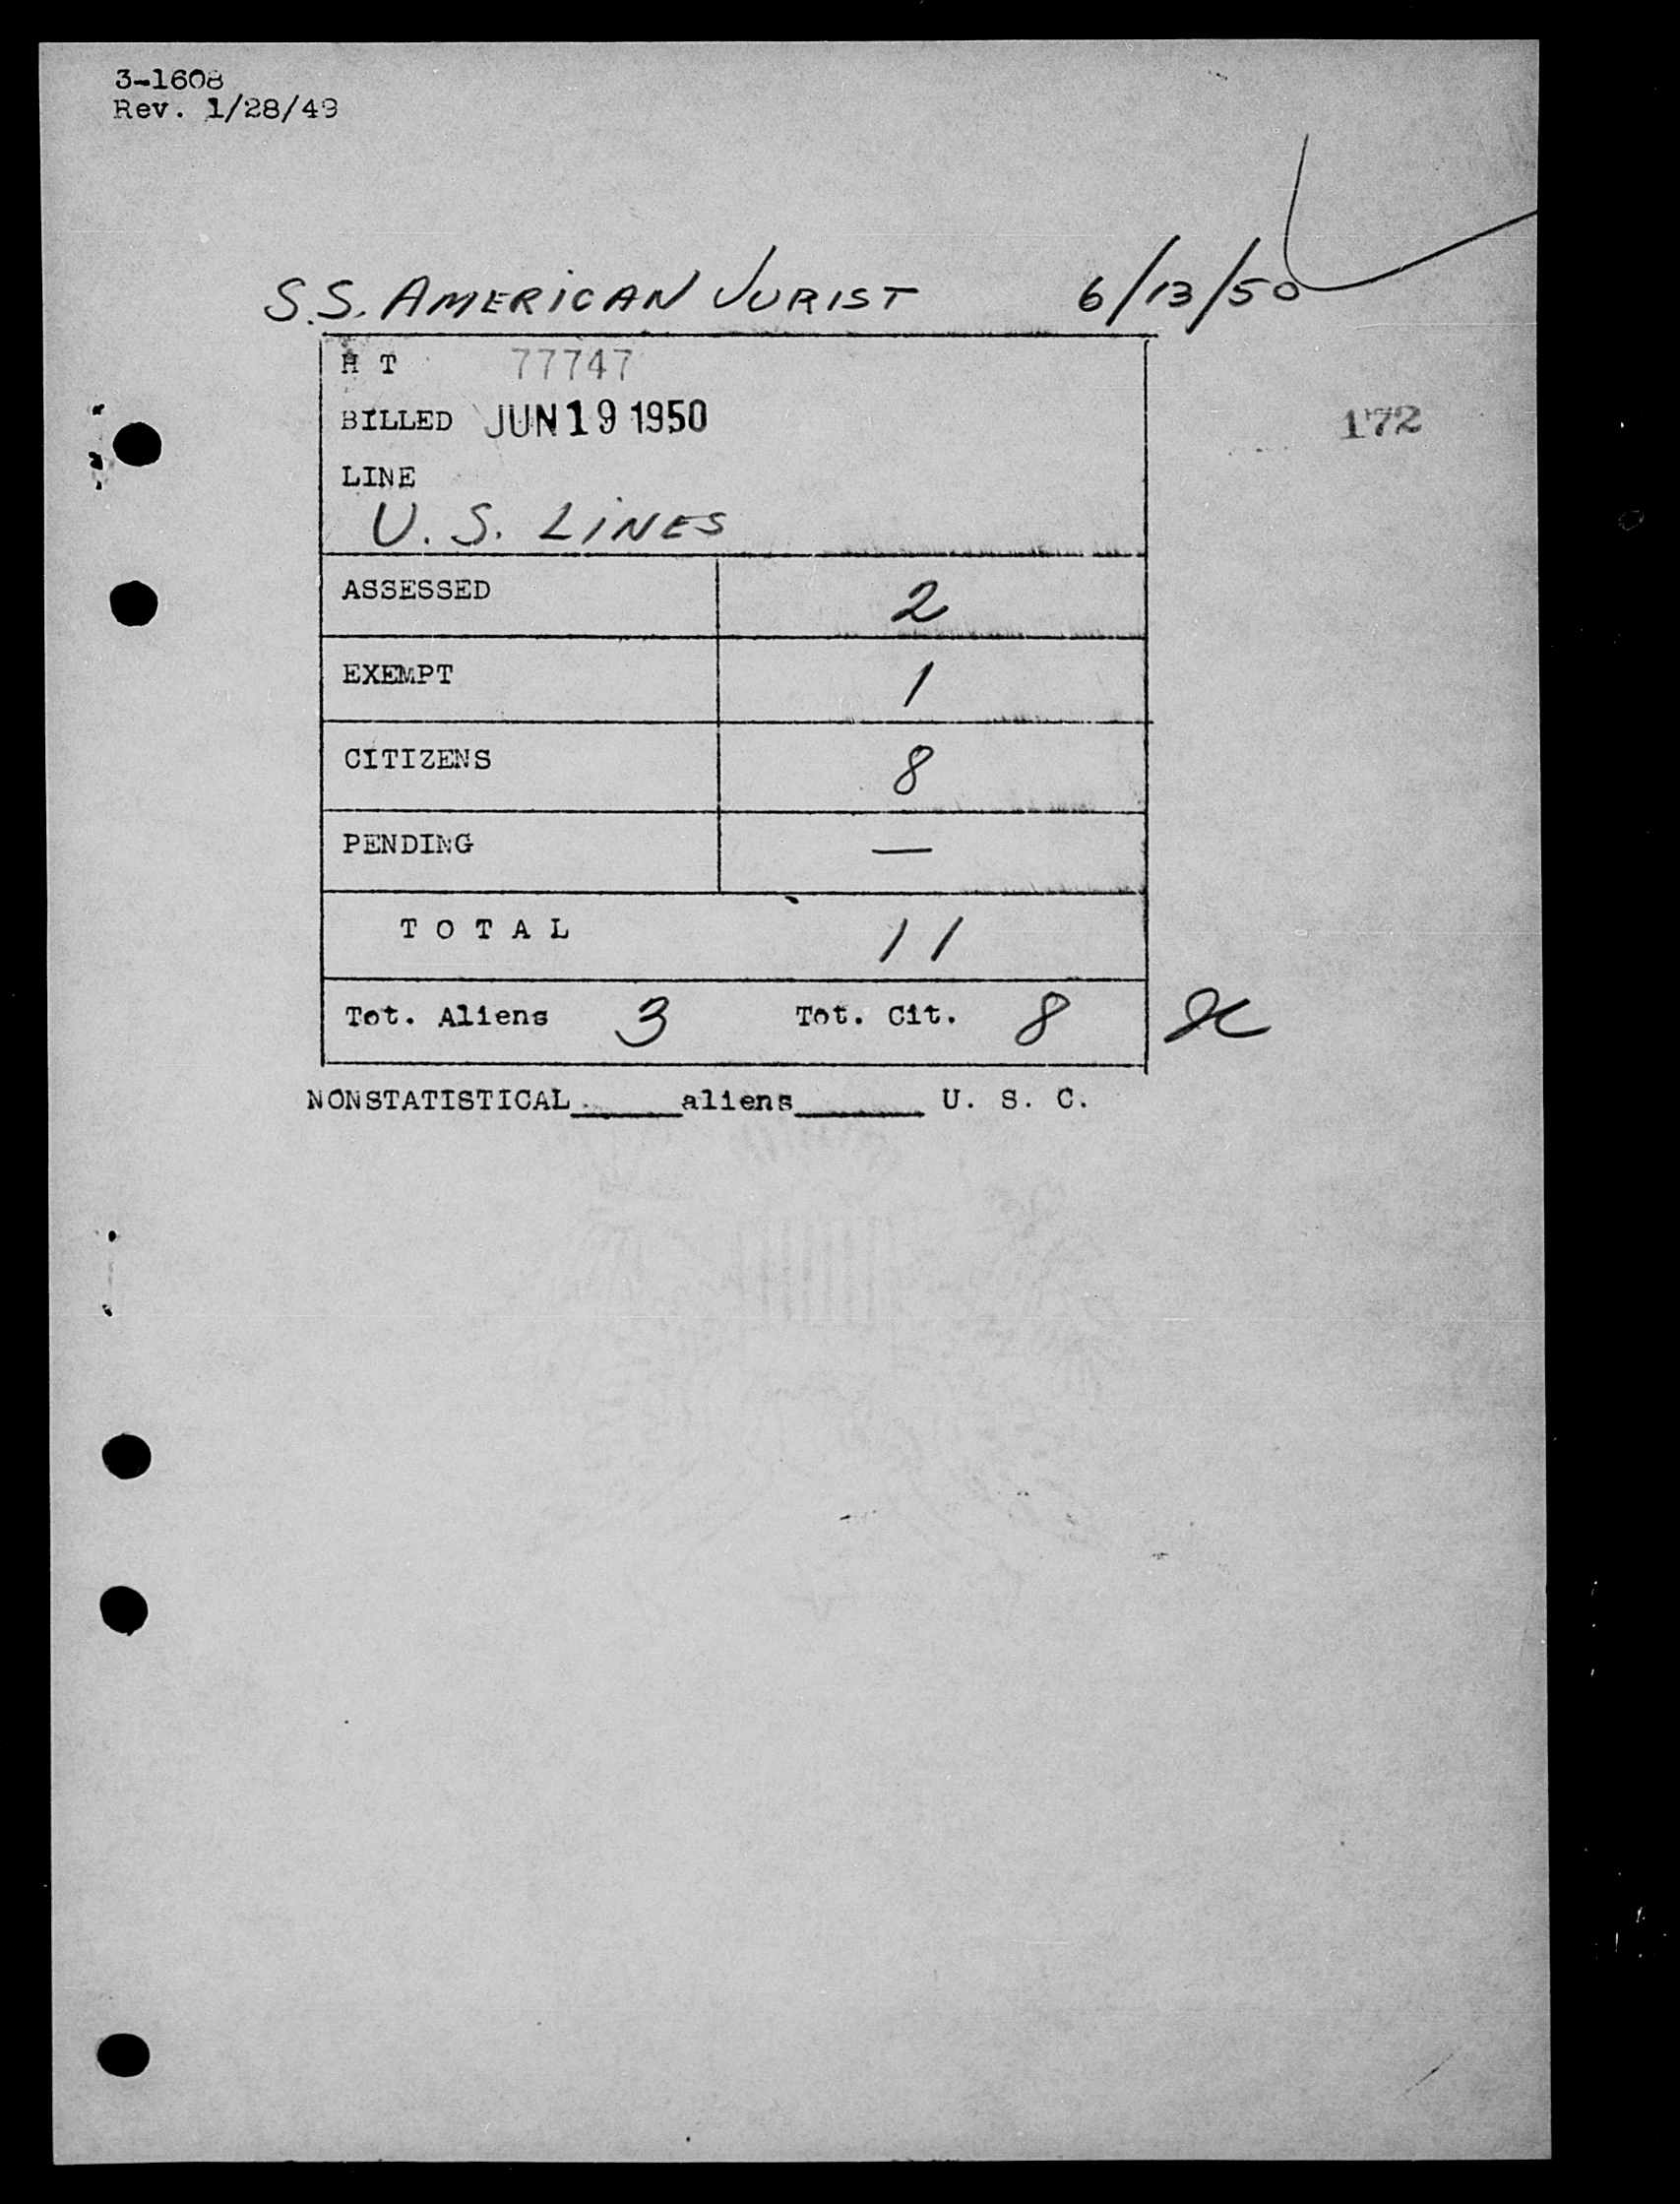 3-1608
Rev. 1/28/49
S.S. AMERICAN JURIST 6/13/50
H T 77747
BILLED JUN 19 1950
172
LINE
U. S. LINES
ASSESSED 2
EXEMPT 1
CITIZENS 8
PENDING —
T O T A L 11
Tot. Aliens 3 Tot. Cit. 8
NONSTATISTICAL______aliens_______ U. S. C.